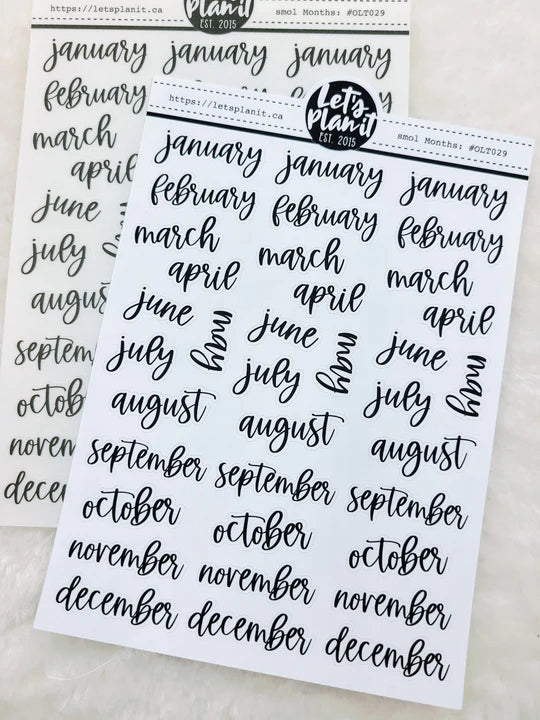 https://letsplanit.ca
Plan it
EST. 2015
smol Months: #OLT029
january january january
february
march
april
june
july
https://letsplanit.ca
Let's
Plan it
EST. 2015
smol Months: #OLT029
january january january
february february february
march march march
april april april
june june june
may may may
july july july
august august august
september september september
october october october
november november november
december december december